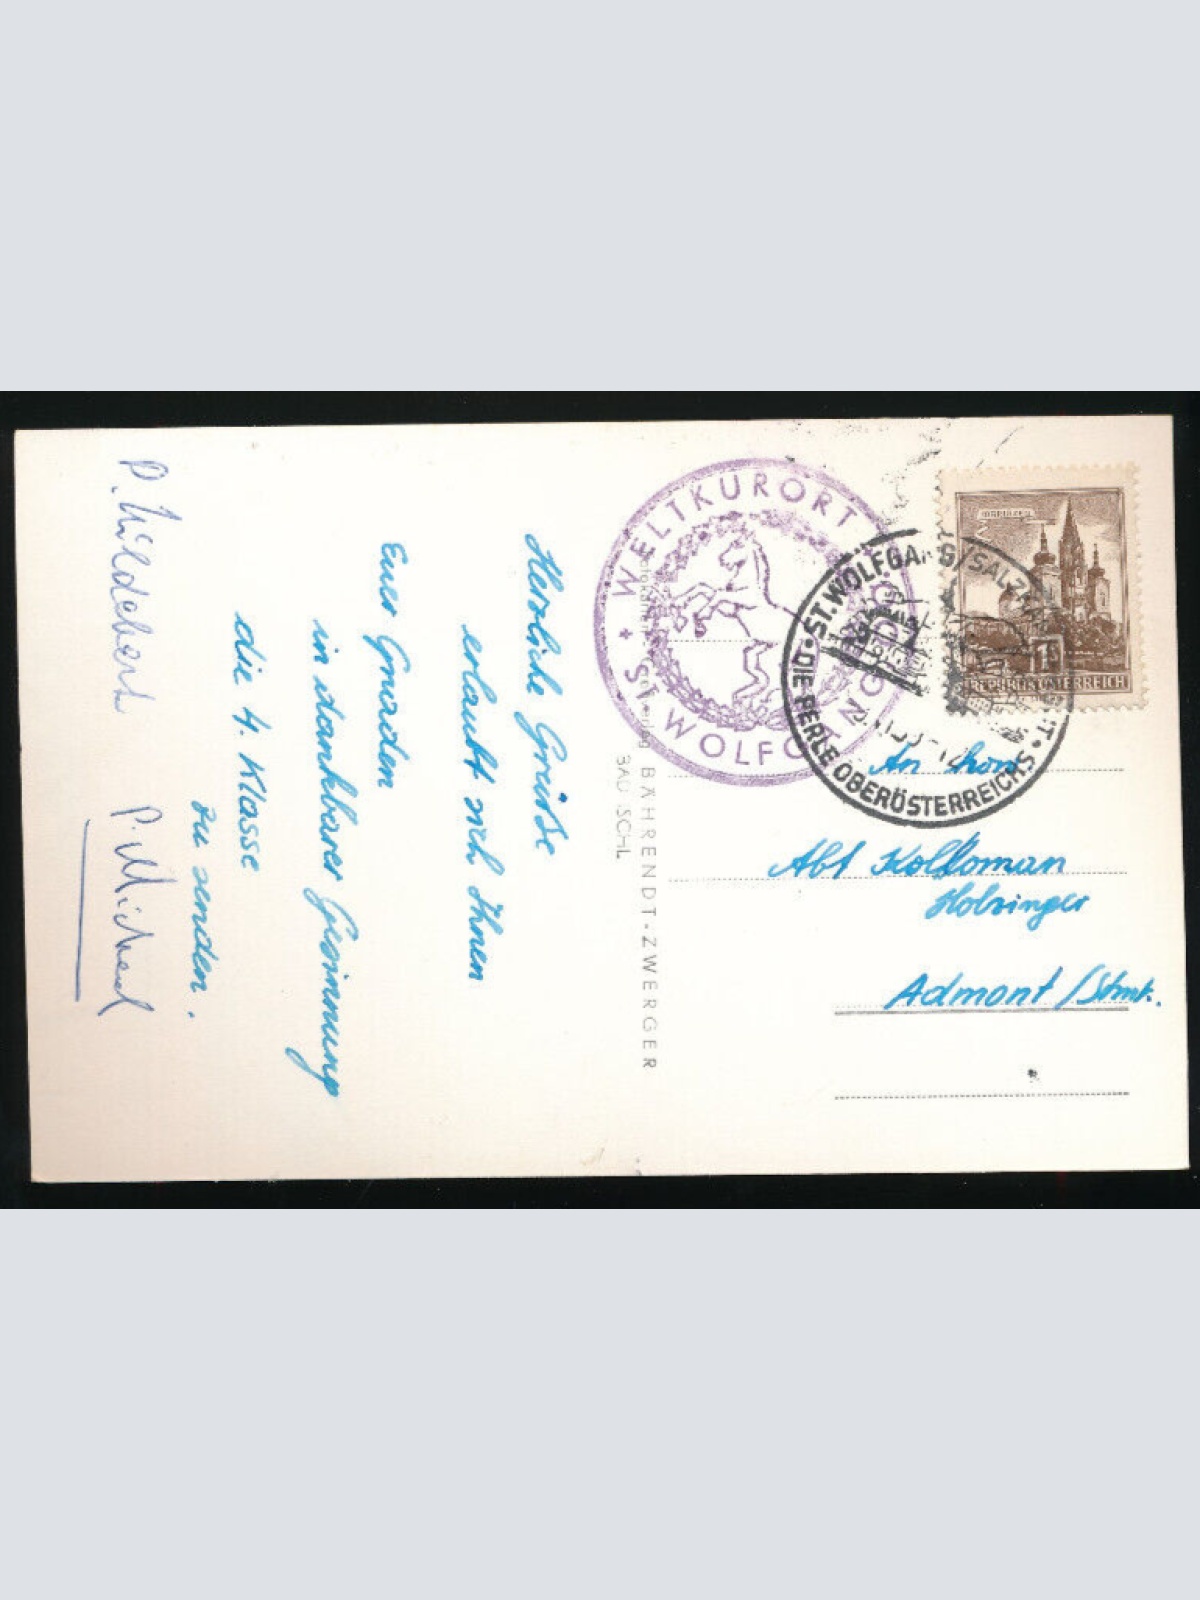 Herzliche Grüße
erlaubt sich Ihnen
Euer Gnaden
in dankbarer Gesinnung
die 4. Klasse
zu senden.
P. Hildebert P. Michael
WELTKURORT
ST. WOLFGANG
BÄHRENDT-ZWERGER
BAD ISCHL
MARIAZELL
1S
REPUBLIK ÖSTERREICH
ST. WOLFGANG/SALZKAMMERGUT
DIE PERLE OBERÖSTERREICHS
An
Abt Kolloman
Holzinger
Admont /Stmk.